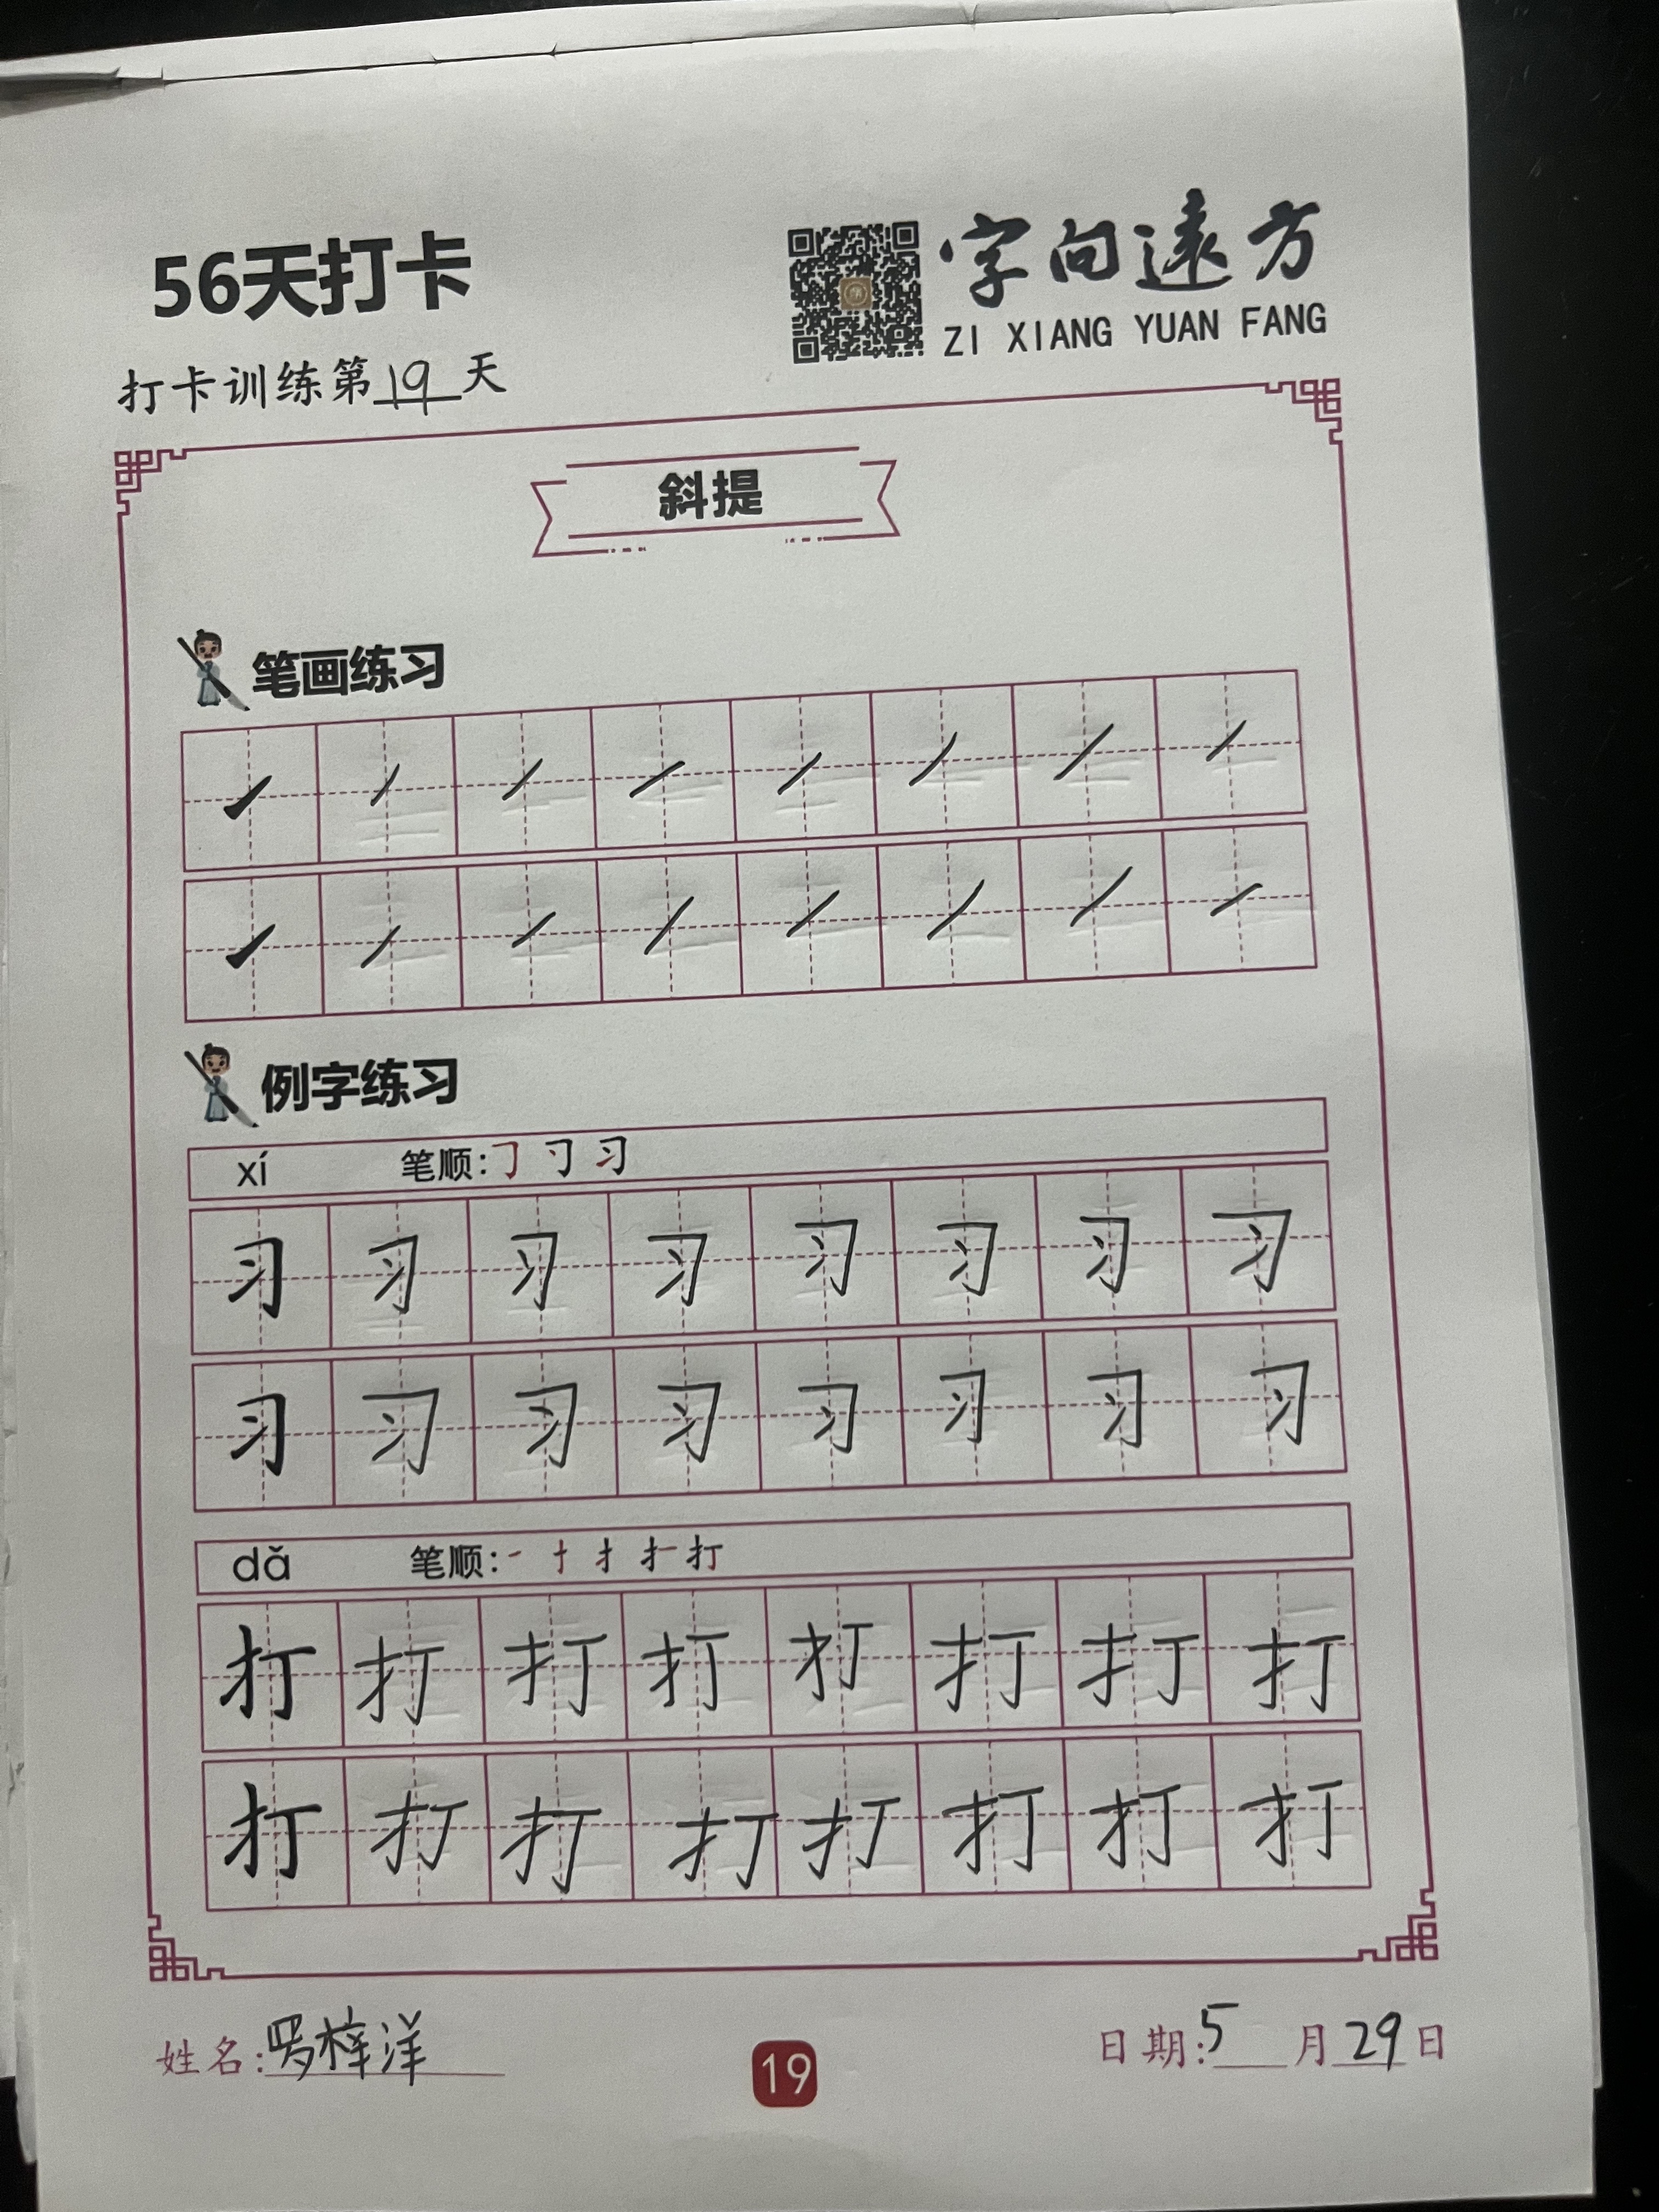 56天打卡
字向遠方
ZI XIANG YUAN FANG
打卡训练第19天
斜提
笔画练习
例字练习
xí 笔顺: 习
习 习 习 习 习 习 习 习
习 习 习 习 习 习 习 习
dǎ 笔顺: 一 十 扌 打
打 打 打 打 打 打 打 打
打 打 打 打 打 打 打 打
姓名: 罗梓洋
19
日期: 5月29日